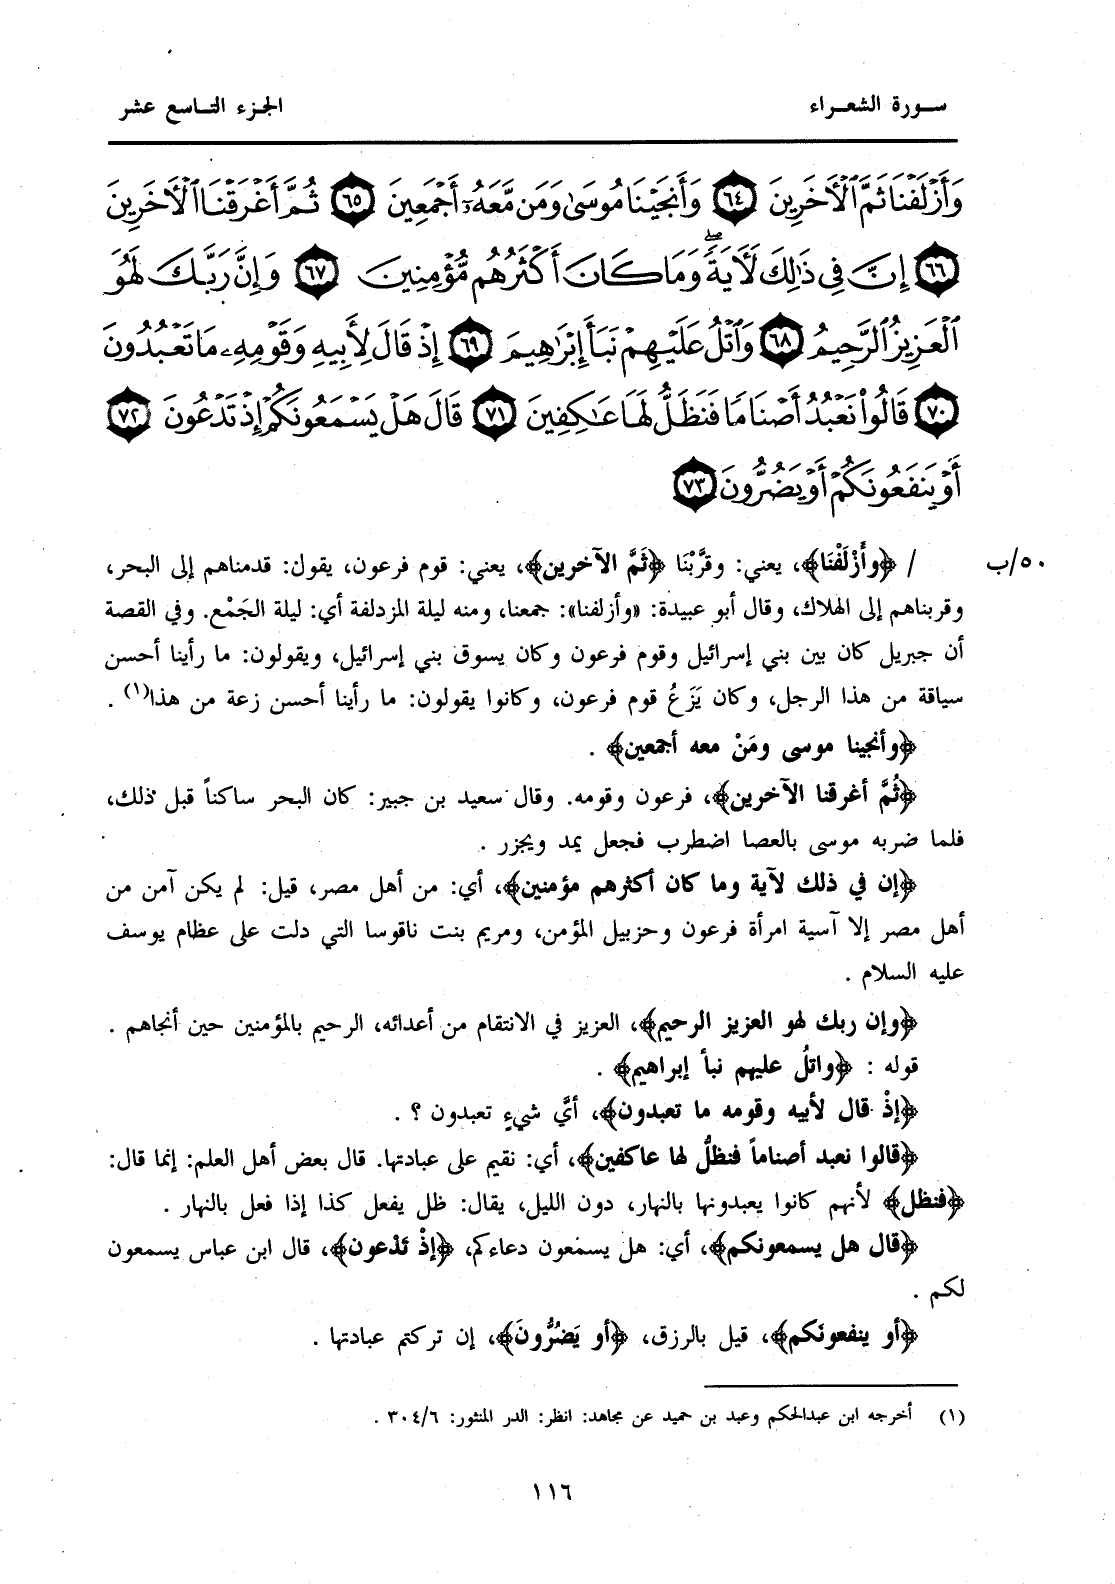 سورة الشعراء
الجزء التاسع عشر
وَأَزْلَفْنَا ثَمَّ ٱلْأَخَرِينَ ٦٤ وَأَنجَيْنَا مُوسَىٰ وَمَن مَّعَهُۥٓ أَجْمَعِينَ ٦٥ ثُمَّ أَغْرَقْنَا ٱلْأَخَرِينَ
٦٦ إِنَّ فِى ذَٰلِكَ لَأَيَةً ۖ وَمَا كَانَ أَكْثَرُهُم مُّؤْمِنِينَ ٦٧ وَإِنَّ رَبَّكَ لَهُوَ
ٱلْعَزِيزُ ٱلرَّحِيمُ ٦٨ وَٱتْلُ عَلَيْهِمْ نَبَأَ إِبْرَٰهِيمَ ٦٩ إِذْ قَالَ لِأَبِيهِ وَقَوْمِهِۦ مَا تَعْبُدُونَ
٧٠ قَالُوا۟ نَعْبُدُ أَصْنَامًا فَنَظَلُّ لَهَا عَٰكِفِينَ ٧١ قَالَ هَلْ يَسْمَعُونَكُمْ إِذْ تَدْعُونَ ٧٢
أَوْ يَنفَعُونَكُمْ أَوْ يَضُرُّونَ ٧٣
٥٠/ب
/ ﴿وأَزْلَفْنَا﴾، يعني: وقرَّبْنَا ﴿ثَمَّ الآخرين﴾، يعني: قوم فرعون، يقول: قدمناهم إلى البحر،
وقربناهم إلى الهلاك، وقال أبو عبيدة: «وأزلفنا»: جمعنا، ومنه ليلة المزدلفة أي: ليلة الجَمْع. وفي القصة
أن جبريل كان بين بني إسرائيل وقوم فرعون وكان يسوق بني إسرائيل، ويقولون: ما رأينا أحسن
سياقة من هذا الرجل، وكان يَزَعُ قوم فرعون، وكانوا يقولون: ما رأينا أحسن زعة من هذا(١) .
﴿وأنجينا موسى ومَنْ معه أجمعين﴾ .
﴿ثُمَّ أغرقنا الآخرين﴾، فرعون وقومه. وقال سعيد بن جبير: كان البحر ساكناً قبل ذلك،
فلما ضربه موسى بالعصا اضطرب فجعل يمد ويجزر .
﴿إن في ذلك لآية وما كان أكثرهم مؤمنين﴾، أي: من أهل مصر، قيل: لم يكن آمن من
أهل مصر إلا آسية امرأة فرعون وحزبيل المؤمن، ومريم بنت ناقوسا التي دلت على عظام يوسف
عليه السلام .
﴿وإن ربك لهو العزيز الرحيم﴾، العزيز في الانتقام من أعدائه، الرحيم بالمؤمنين حين أنجاهم .
قوله : ﴿واتلُ عليهم نبأ إبراهيم﴾ .
﴿إذْ قال لأبيه وقومه ما تعبدون﴾، أيَّ شيءٍ تعبدون ؟ .
﴿قالوا نعبد أصناماً فنظلُّ لها عاكفين﴾، أي: نقيم على عبادتها. قال بعض أهل العلم: إنما قال:
﴿فنظل﴾ لأنهم كانوا يعبدونها بالنهار، دون الليل، يقال: ظل يفعل كذا إذا فعل بالنهار .
﴿قال هل يسمعونكم﴾، أي: هل يسمعون دعاءكم، ﴿إذْ تَدْعون﴾، قال ابن عباس يسمعون
لكم .
﴿أو ينفعونَكم﴾، قيل بالرزق، ﴿أو يَضُرُّونَ﴾، إن تركتم عبادتها .
(١) أخرجه ابن عبدالحكم وعبد بن حميد عن مجاهد: انظر: الدر المنثور: ٣٠٤/٦ .
١١٦